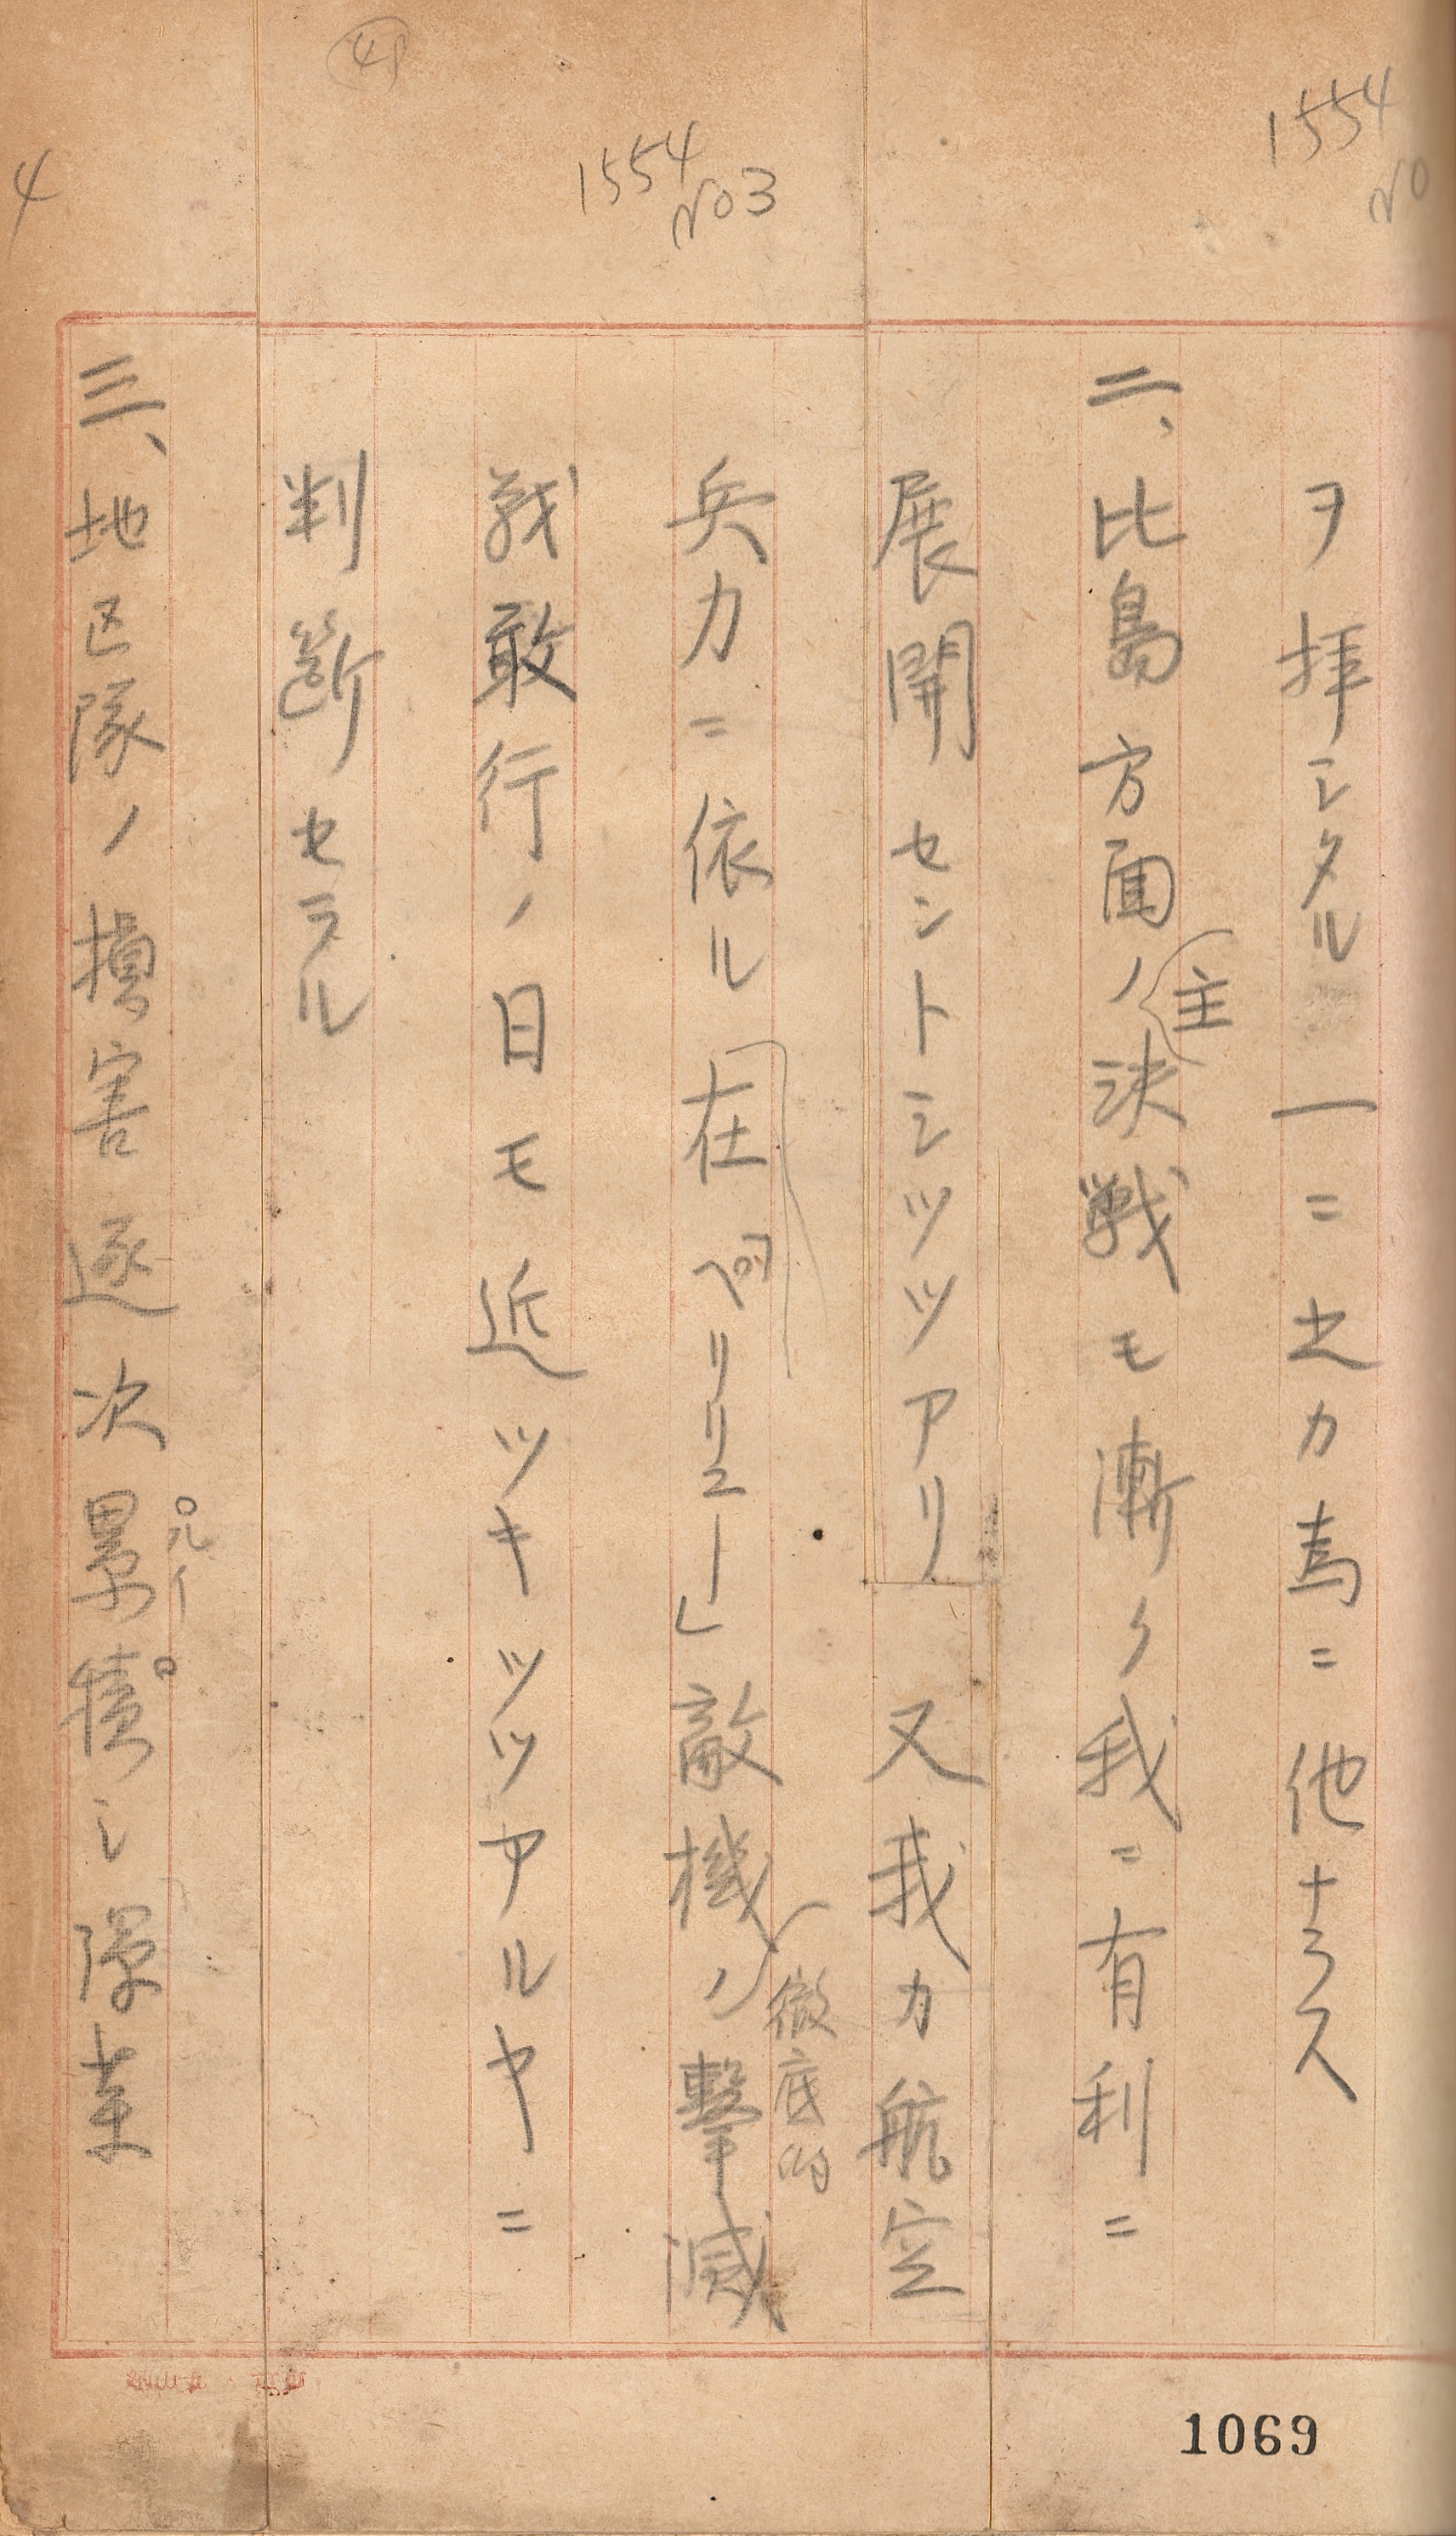 1554
NO
ヲ拝シタル 一ニ之カ為ニ他ナラス
二、比島方面ノ決戦モ漸ク我ニ有利ニ
主
展開セントシツツアリ 又我カ航空
1554
NO3
兵力ニ依ル在「ペリリユー」敵機ノ撃滅
徹底的
戦敢行ノ日モ近ツキツツアルヤニ
判断セラル
4
三、地区隊ノ損害逐次累積シ弾薬
ルイ
1069